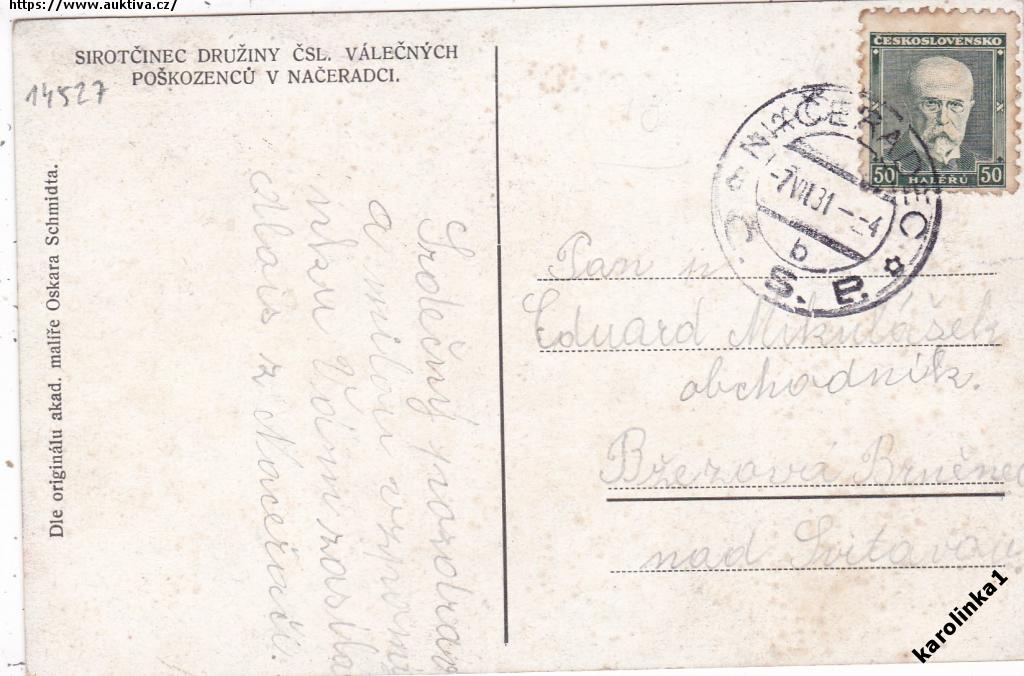 https://www.auktiva.cz/
SIROTČINEC DRUŽINY ČSL. VÁLEČNÝCH
POŠKOZENCŮ V NAČERADCI.
14527
Die originálu akad. malíře Oskara Schmidta.
Srdečný pozdrav
a milou vzpomí
nku Vám zasílá
z Načeradce.
ČESKOSLOVENSKO
50 HALÉŘŮ 50
NAČERADEC
-7.VII.31--4
b
Pan
Eduard Mikulášek
obchodník.
Březová Brněnec
nad Svitavou
karolinka1